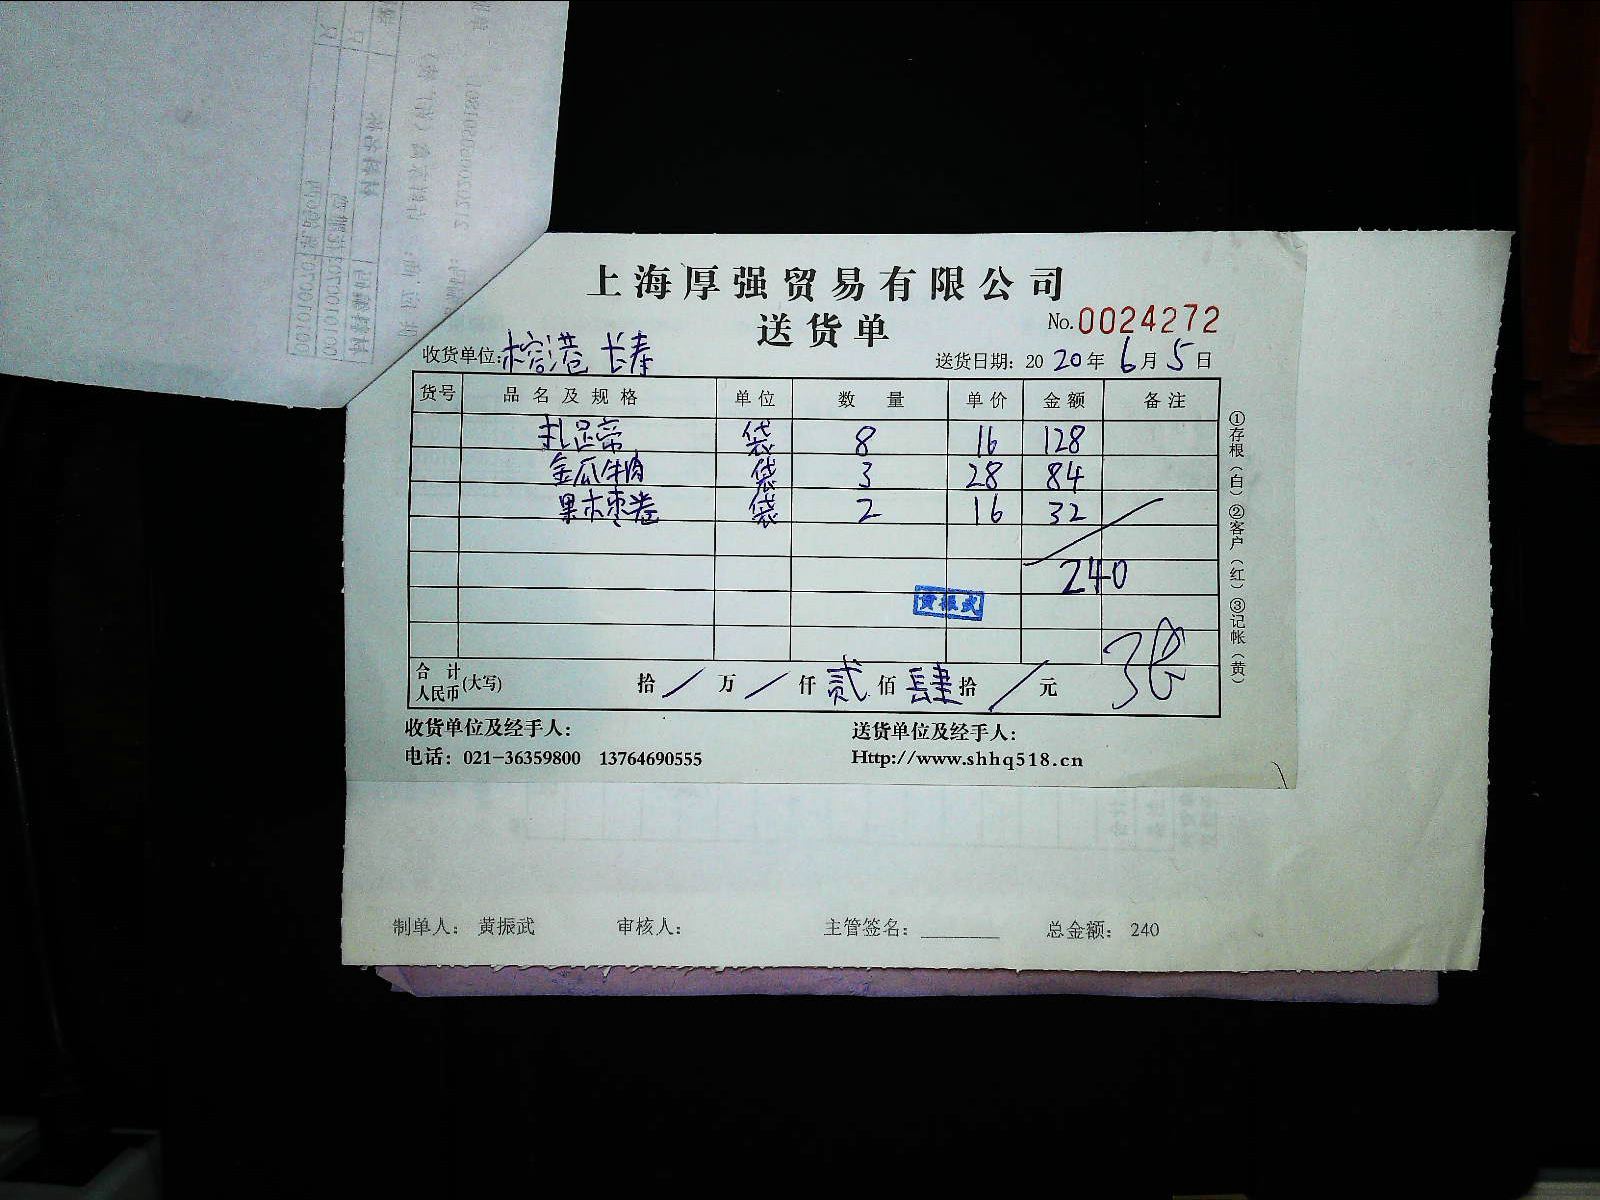 上海厚强贸易有限公司
送货单
No.0024272
收货单位:榕港 长寿
送货日期: 2020年6月5日
货号 品名及规格 单位 数量 单价 金额 备注
扎蹄 袋 8 16 128
金瓜牛肉 袋 3 28 84
果木枣卷 袋 2 16 32
240
黄振武
合计人民币(大写) 拾/万/仟贰佰肆拾/元
①存根(白)②客户(红)③记帐(黄)
收货单位及经手人:
送货单位及经手人:
电话: 021-36359800 13764690555
Http://www.shhq518.cn
制单人: 黄振武 审核人: 主管签名: ________ 总金额: 240